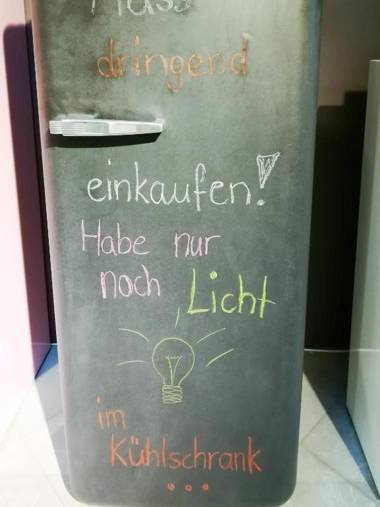 Muss
dringend
einkaufen!
Habe nur
noch Licht
im
Kühlschrank
...